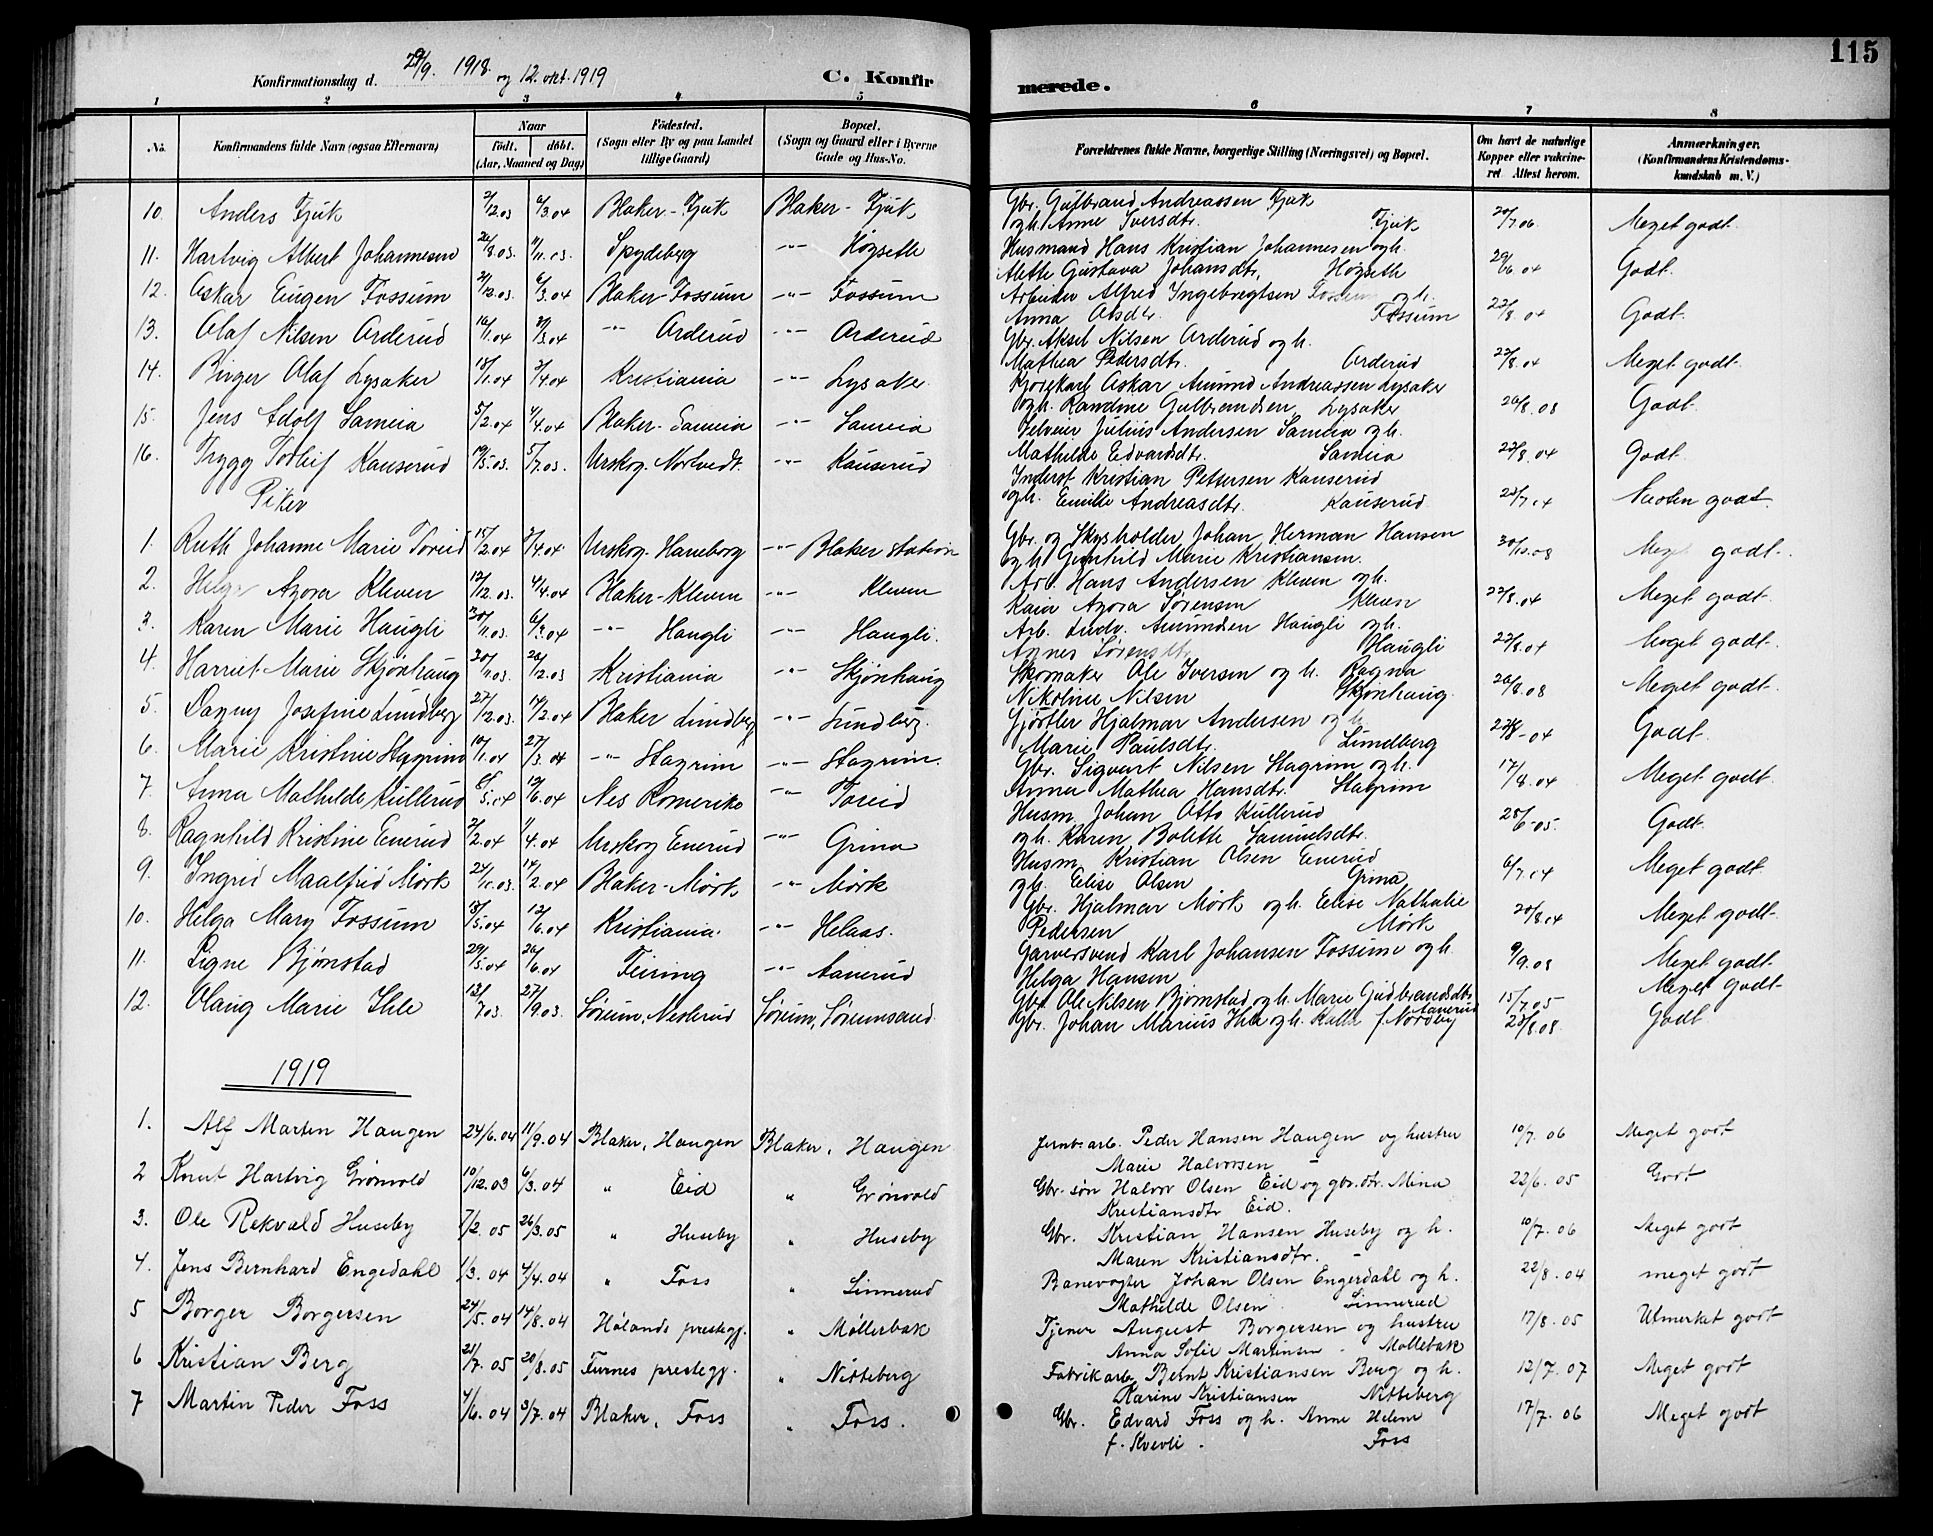 115
Konfirmationsdag d. 29/9. 1918 og 12. okt. 1919
C. Konfirmerede.
1 2 3 4 5 6 7 8
No. Konfirmandens fulde Navn (ogsaa Efternavn) Naar født. døbt. (Aar, Maaned og Dag) Fødested. (Sogn eller By og paa Landet tillige Gaard) Bopæl. (Sogn og Gaard eller i Byerne Gade og Hus-No. Forældrenes fulde Navne, borgerlige Stilling (Næringsvei) og Bopæl. Om havt de naturlige Kopper eller vakcineret Attest herom. Anmærkninger. (Konfirmandens Kristendomskundskab m. V.)
10. Anders Fjuk 2/12.03 6/3.04 Blaker - Fjuk Blaker - Fjuk Gbr. Gulbrand Andreassen Fjuk
og h. Anne Iversdtr. Fjuk 20/7.06. Meget godt.
11. Hartvig Albert Johannesen 26/8.03. 11/11.03. Spydeberg -"- Høgseth Husmand Hans Kristian Johannesen og h.
Alette Gustava Johansdtr. Høgseth 29/6.04 Godt.
12. Oskar Eugen Fossum 2/12.03. 6/3.04 Blaker Fossum -"- Fossum Arbeider Alfred Ingebregtsen Fossum og h.
Anna Olsdtr. Fossum 22/8.04 Godt.
13. Olaf Nilsen Orderud 16/1.04 27/3.04 -"- Orderud -"- Orderud Gbr. Aksel Nilsen Orderud og h.
Mathea Pedersdtr. Orderud 22/8.04 Meget godt.
14. Birger Olaf Lysaker 18/1.04 3/4.04 Kristiania -"- Lysaker Kjørekarl Oskar Amund Andreassen Lysaker
og h. Randine Gulbrandsen Lysaker 26/8.08 Godt.
15. Jens Adolf Sameia 5/2.04 4/4.04 Blaker - Sameia -"- Sameia Selveier Julius Andersen Sameia og h.
Mathilde Edvardsdtr. Sameia 22/8.04 Godt.
16. Trygg Torleif Kauserud 19/5.03. 5/7.03. Urskog. Nortvedt. -"- Kauserud Inderst Kristian Pettersen Kauserud
og h. Emilie Andreasdtr. Kauserud 23/7.04 Næsten godt.
Piker
1. Ruth Johanne Marie Toreid 15/2.04 3/4.04 Urskog. Haneborg -"- Blaker station Gbr. og Skysholder Johan Herman Hansen
og h. Gunhild Marie Kristiansen. 30/10.08 Meget godt.
2. Helga Azora Kleven 12/12.03. 4/4.04 Blaker - Kleven -"- Kleven Arb. Hans Andersen Kleven og h.
Kaia Azora Sørensen Kleven 22/8.04 Meget godt.
3. Karen Marie Haugli 30/11.03. 6/3.04 -"- Haugli -"- Haugli. Arb. Ludv. Amundsen Haugli og h.
Agnes Sørensdtr. Haugli 22/8.04 Meget godt.
4. Harriet Marie Skjønhaug 30/11.03. 26/12.03 Kristiania -"- Skjønhaug Skomaker Ole Iversen og h. Ragna
Nikoline Nilsen Skjønhaug 26/8.08 Meget godt.
5. Dagny Josefine Lundberg 27/12.03. 14/2.04 Blaker Lundberg -"- Lundberg. Gjørtler Hjalmar Andersen og h.
Marie Paulsdtr. Lundberg 22/8-04 Godt.
6. Marie Kristine Stagrim 10/1.04 27/3.04 -"- Stagrim -"- Stagrim. Gbr. Sigvart Nilsen Stagrim og h.
Anna Mathea Hansdtr. Stagrim 17/8.04 Meget godt.
7. Anna Mathilde Kullerud 6/3.04 12/6.04 Nes Romerike -"- Toreid Husm. Johan Otto Kullerud
og h. Karen Bolette Samuelsdtr. 28/6-05. Godt.
8. Ragnhild Kristine Enerud 2/2.04 1/4.04 Urskog Enerud -"- Grina Husm. Kristian Olsen Enerud
og h. Elise Olsen Grina 6/7.04 Meget godt.
9. Ingrid Maalfrid Mørk 24/11.03. 14/2.04 Blaker - Mørk -"- Mørk Gbr. Hjalmar Mørk og h. Elise Nathalie
Pedersen Mørk 20/8.04 Meget godt.
10. Helga Mary Fossum 18/5.04 12/6.04 Kristiania. -"- Helaas. Garversvend Karl Johansen Fossum og h.
Helga Hansen 9/9.08 Meget godt
11. Signe Bjønstad 29/5.04 26/6.04 Feiring -"- Aanerud Gbr. Ole Nilsen Bjørnstad og h. Marie Gudbrandsdtr. Aanerud 15/7.05 Meget godt.
12. Olaug Marie Ihle 13/7.03. 27/9.03. Sørum, Nesterud Sørum, Sørumsand. Gbr. Johan Marius Ihle og h. Kalla f. Nordby 28/8.08. Godt
1919
1. Alf Marten Haugen 24/6.04 11/9.04 Blaker, Haugen Blaker, Haugen Jernb. arb. Peder Hansen Haugen og hustru
Marie Halvorsen - 10/7.06 Meget godt
2 Knut Hartvig Grønvold 10/12.03 6/3.04 " Eid " Grønvold Gbr. søn Halvor Olsen Eid og gbr.dtr. Mina
Kristiansdtr Eid. 22/6.05 Godt
3. Ole Rekvald Huseby 7/2.05 26/3.05 " Huseby " Huseby Gbr. Kristian Hansen Huseby og h.
Maren Kristiansdtr. - 10/7.06 Meget godt
4. Jens Bernhard Engedahl 1/3.04 4/4.04 " Foss " Linnerud Banevogter Johan Olsen Engerdahl og h.
Mathilde Olsen Linnerud 22/8.04 meget godt
5 Borger Borgersen 24/5.04 14/8.04 Hølands prestegj. " Møllerbak Tjener August Borgersen og hustru
Anna Sofie Martinsen - Møllebak 17/8.05 Utmerket godt
6 Kristian Berg 21/7.05 20/8.05 Furnes prestegj. " Nitteberg Fabrikarb. Bernt Kristiansen Berg og h.
Karine Kristiansen Nitteberg 12/7.07 Meget godt
7 Martin Peder Foss 4/6.04 3/7.04 Blaker, Foss " Foss. Gbr. Edvard Foss og h. Anne Helene
f. Kvevli. Foss 17/7.06 Meget godt